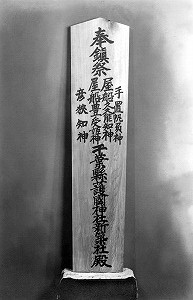 奉鎮祭
手置帆負神
屋船久久能知神
屋船豊受姫神
彦狭知神
千葉縣護國神社新築社殿